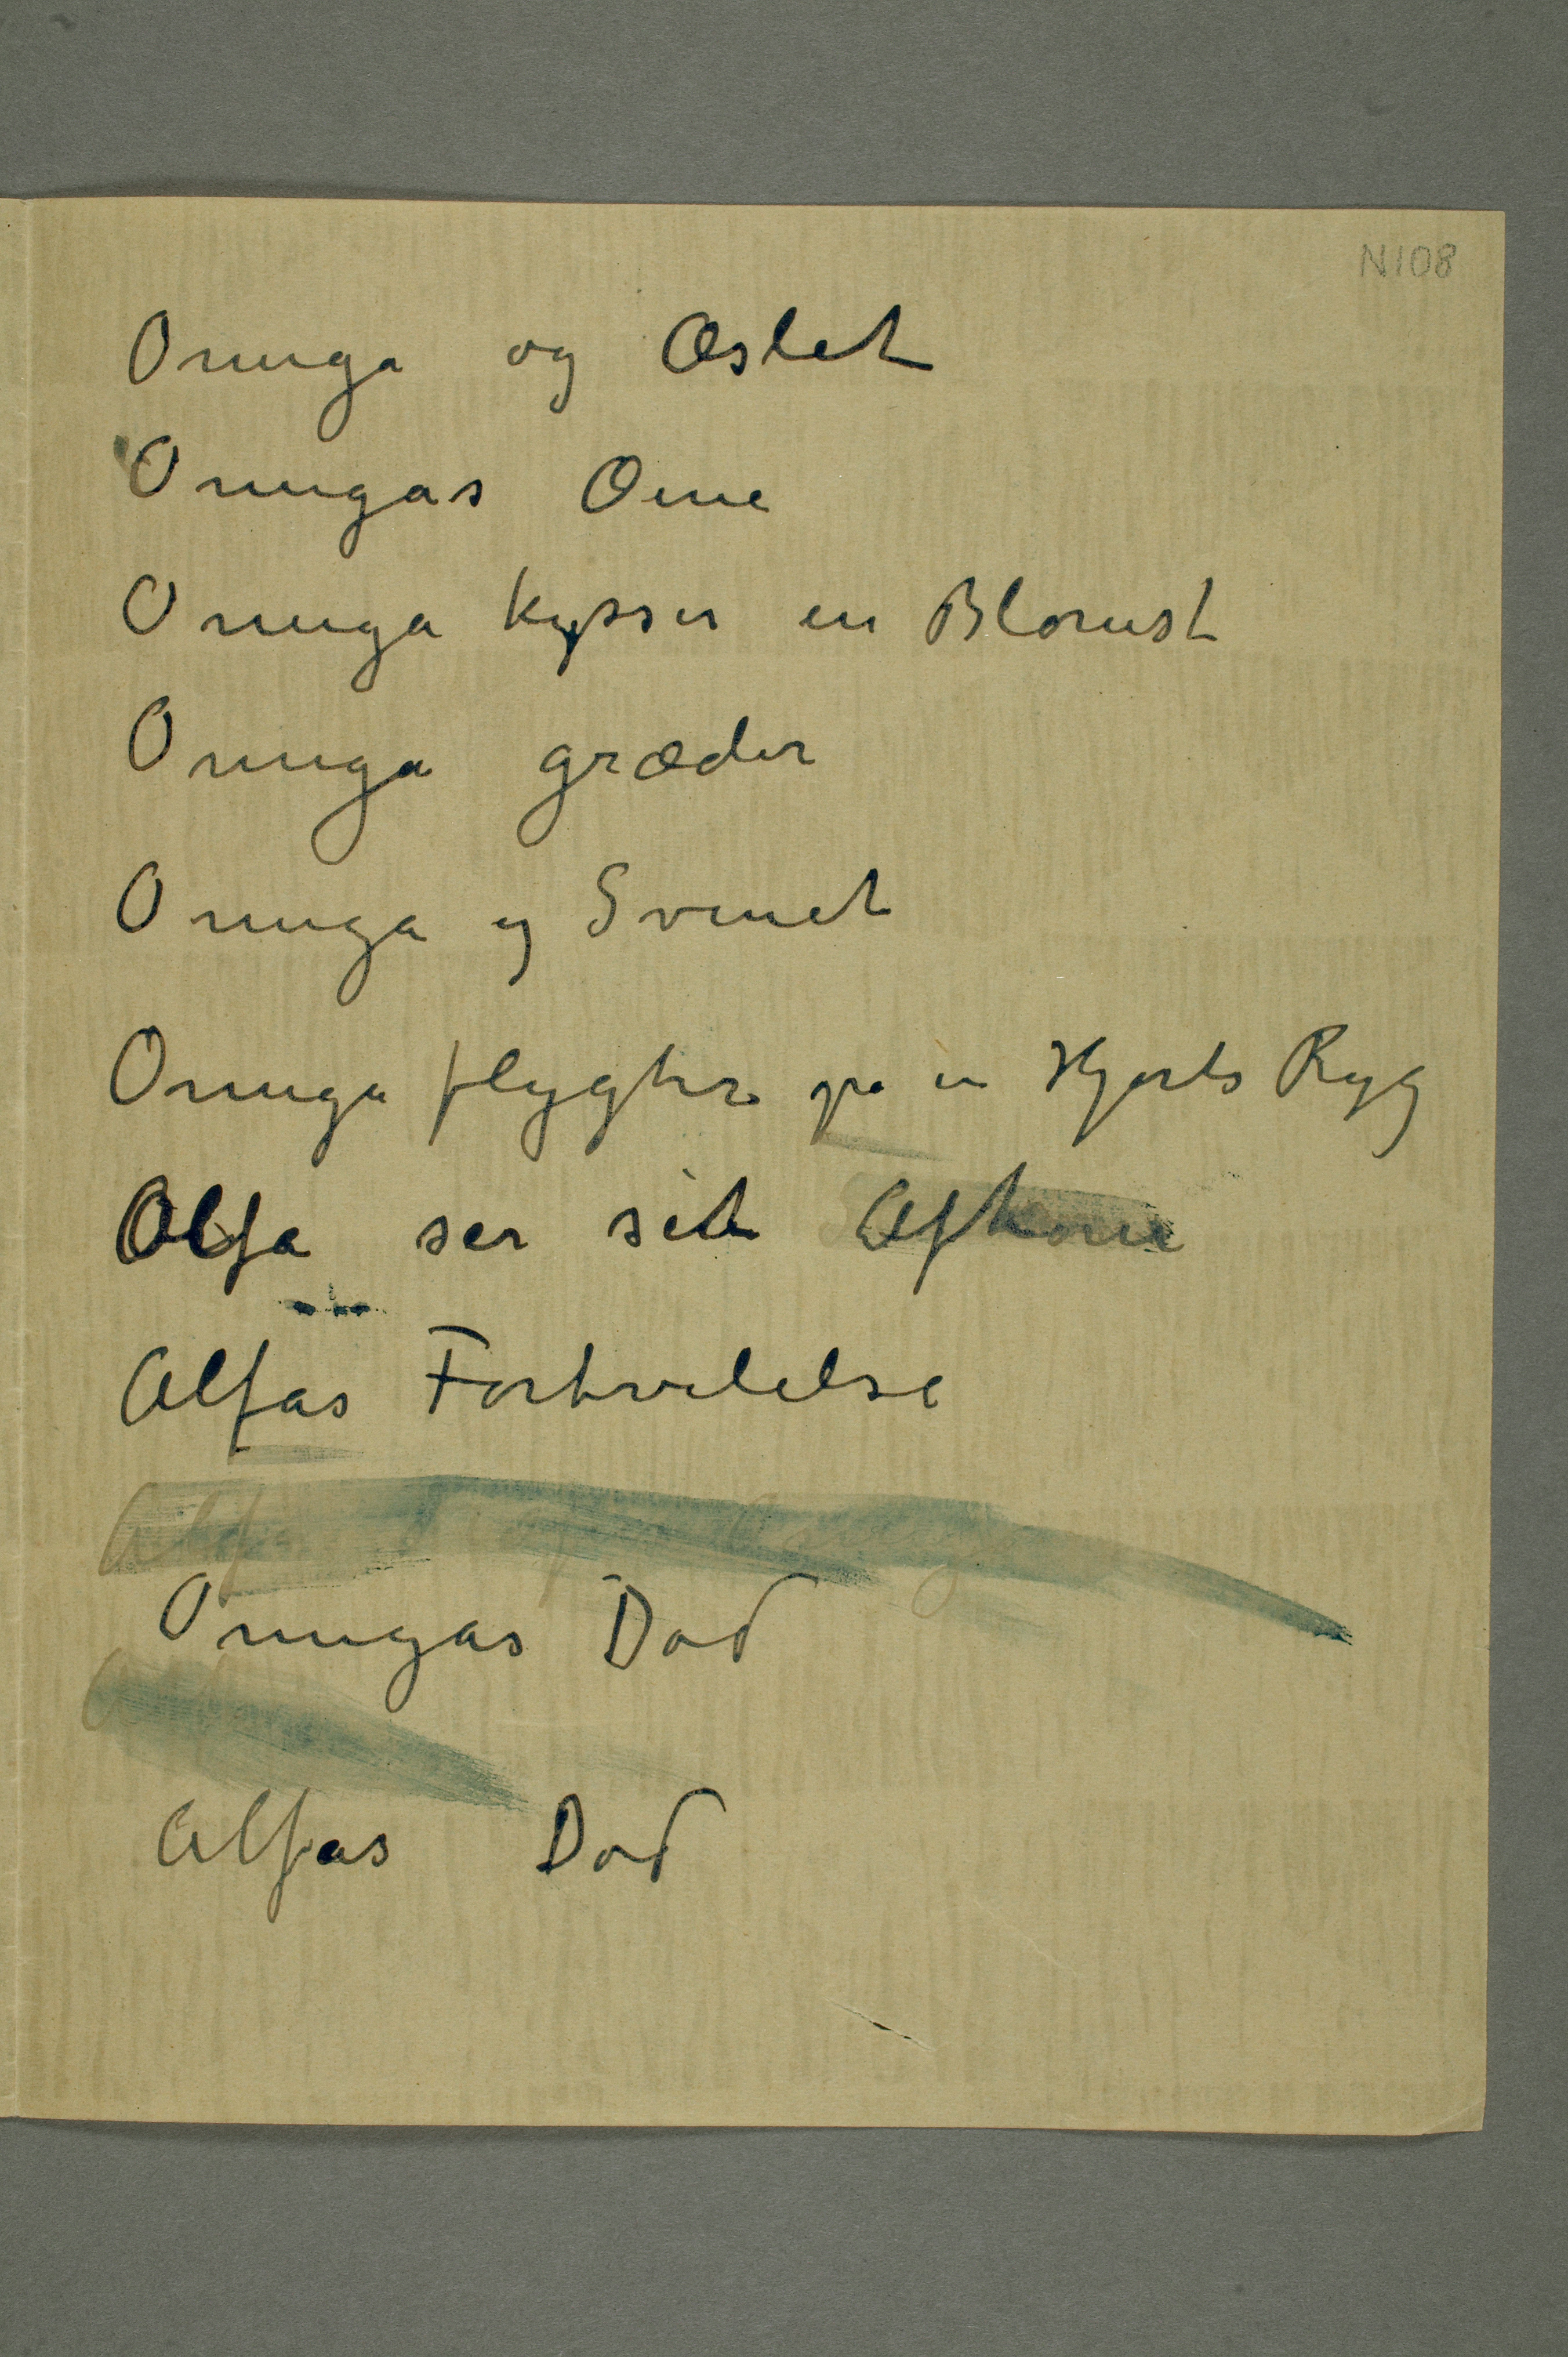 N108
Omega og Æslet
Omegas Øine
Omega kysser en Blomst
Omega græder
Omega og Svinet
Omega flygter på en Hjorts Ryg
Alfa ser sit Afkom
Alfas Fortvilelse
Omegas Død
Alfas Død